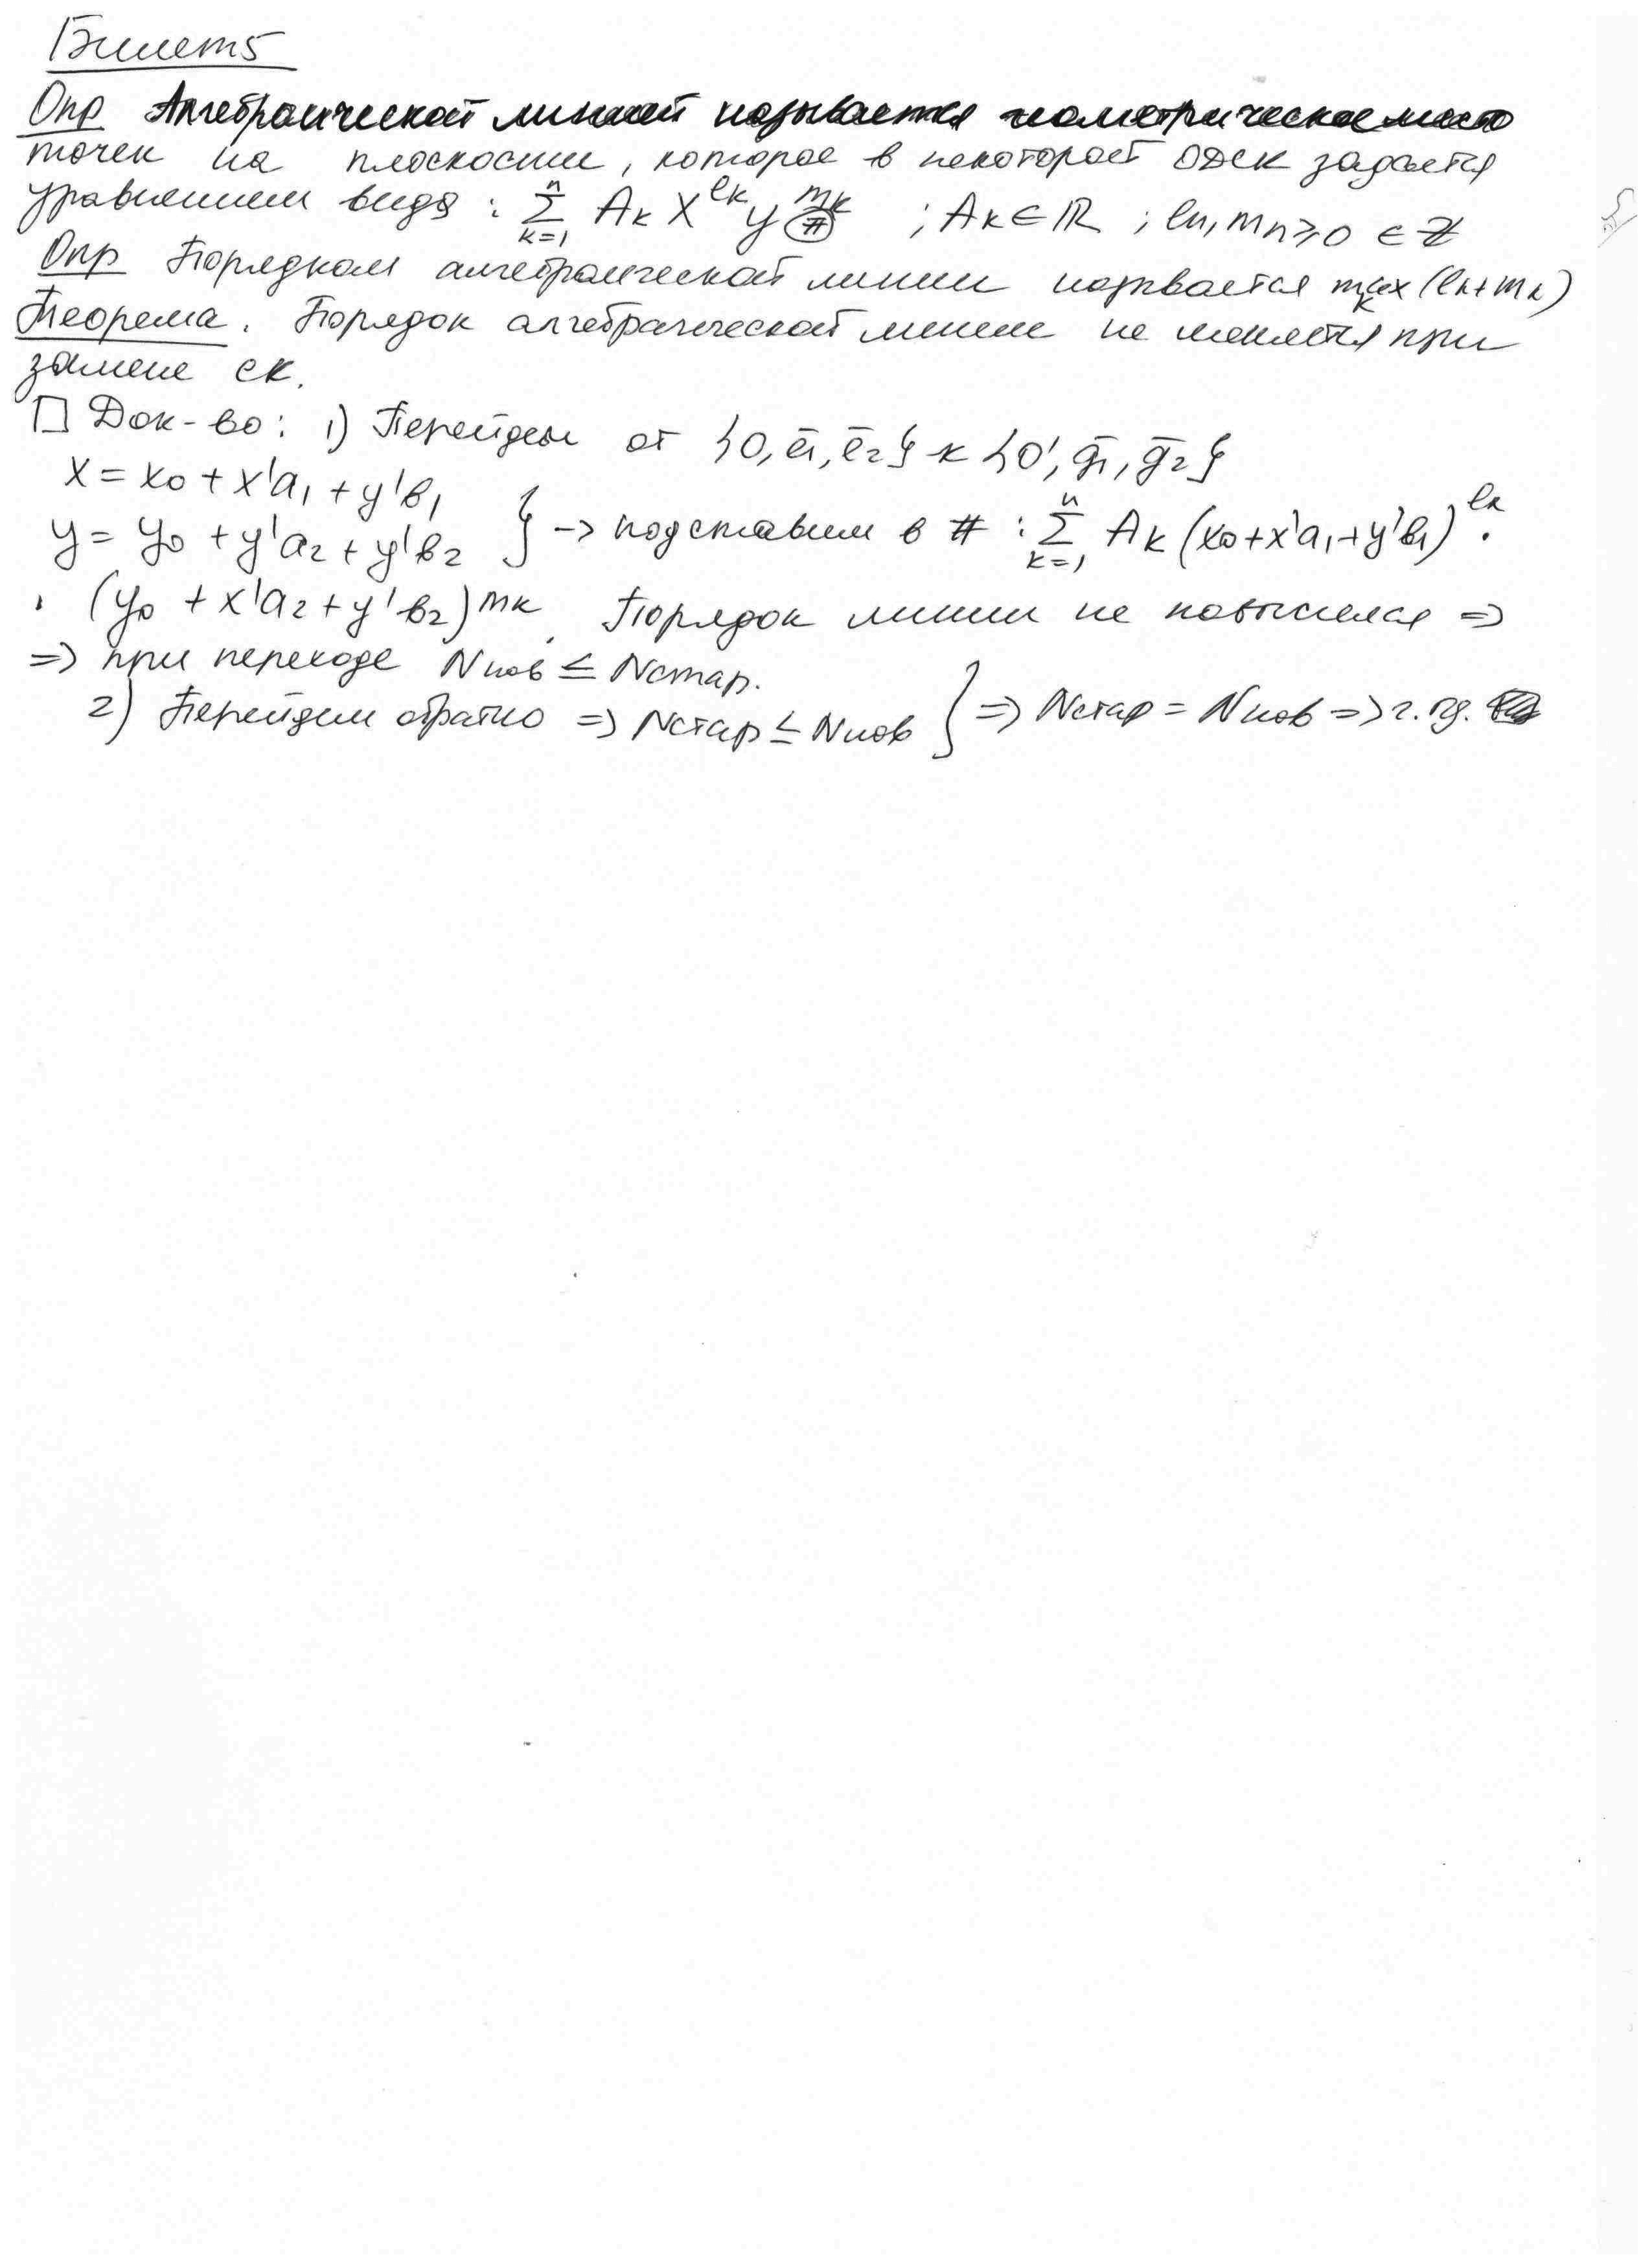 Билет 5
Опр Алгебраической линией называется геометрическое место
точек на плоскости, которое в некоторой ОДСК задается
уравнением вида : ∑ₖ₌₁ⁿ Aₖ x^lₖ y^mₖ (#) ; Aₖ ∈ ℝ ; lₙ, mₙ ≥ 0 ∈ ℤ
Опр Порядком алгебраической линии называется maxₖ (lₖ+mₖ)
Теорема. Порядок алгебраической линии не меняется при
замене СК.
□ Док-во: 1) Перейдем от {O, e̅₁, e̅₂} к {O', g̅₁, g̅₂}
x = x₀ + x'a₁ + y'b₁
y = y₀ + y'a₂ + y'b₂ } -> подставим в # : ∑ₖ₌₁ⁿ Aₖ (x₀+x'a₁+y'b₁)^lₖ ·
· (y₀ + x'a₂ + y'b₂)^mₖ. Порядок линии не повысился =>
=> при переходе Nнов ≤ Nстар.
2) Перейдем обратно => Nстар ≤ Nнов } => Nстар = Nнов => ч.т.д.